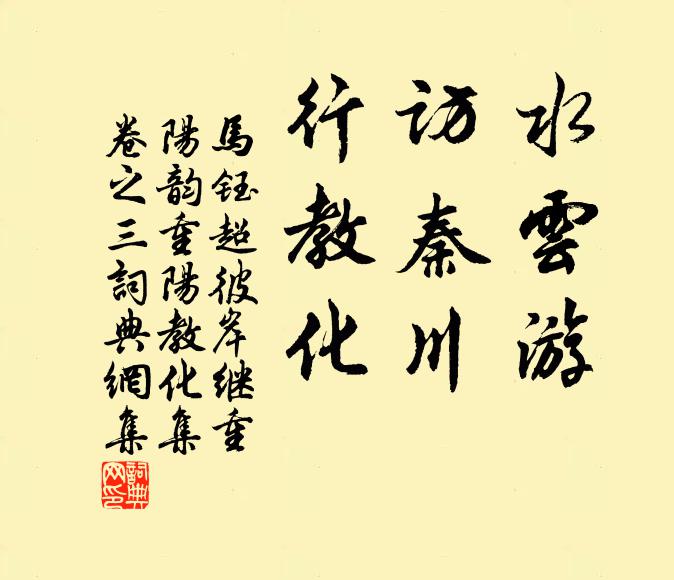 水雲游
訪秦川
行教化
馬鈺超彼岸继重
陽韵重陽教化集
卷之三詞典網集
詞典
网印